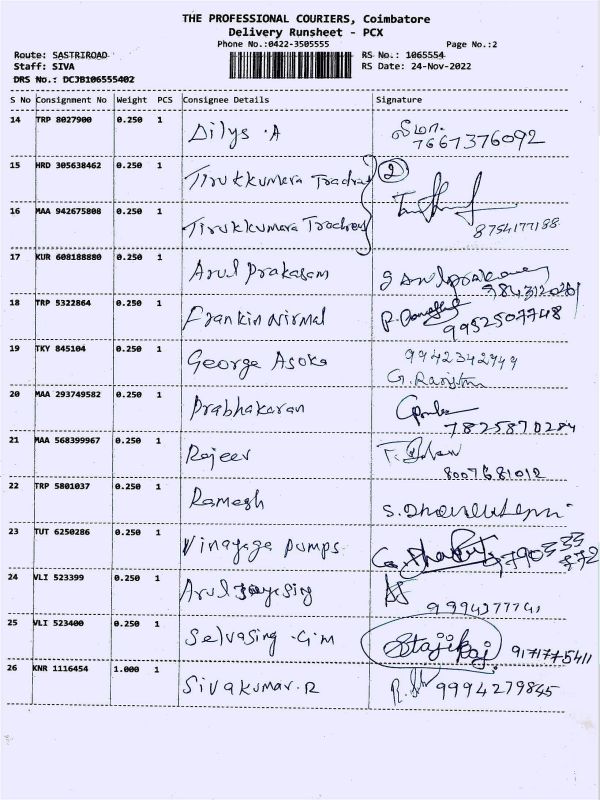 THE PROFESSIONAL COURIERS, Coimbatore
Delivery Runsheet - PCX
Phone No.:0422-3505555 Page No.:2
Route: SASTRIROAD RS No.: 1065554
Staff: SIVA RS Date: 24-Nov-2022
DRS No.: DCJB106555402
S No Consignment No Weight PCS Consignee Details Signature
14 TRP 8027900 0.250 1 Dilys .A
7667376092
15 HRD 305638462 0.250 1 Tirukkumara Traders 2
16 MAA 942675808 0.250 1 Tirukkumara Traders 8754177188
17 KUR 608188880 0.250 1 Arul Prakasam
18 TRP 5322864 0.250 1 Frankin Nirmal
9952507748
19 TKY 845104 0.250 1 George Asoka 9942342949
20 MAA 293749582 0.250 1 Prabhakaran
7825870284
21 MAA 568399967 0.250 1 Rajeev
8007681012
22 TRP 5801037 0.250 1 Ramesh
23 TUT 6250286 0.250 1 Vinayaga Pumps
24 VLI 523399 0.250 1 Arul
25 VLI 523400 0.250 1 Selvasing .G.m 9171775411
26 KNR 1116454 1.000 1 Sivakumar.R 9994279845